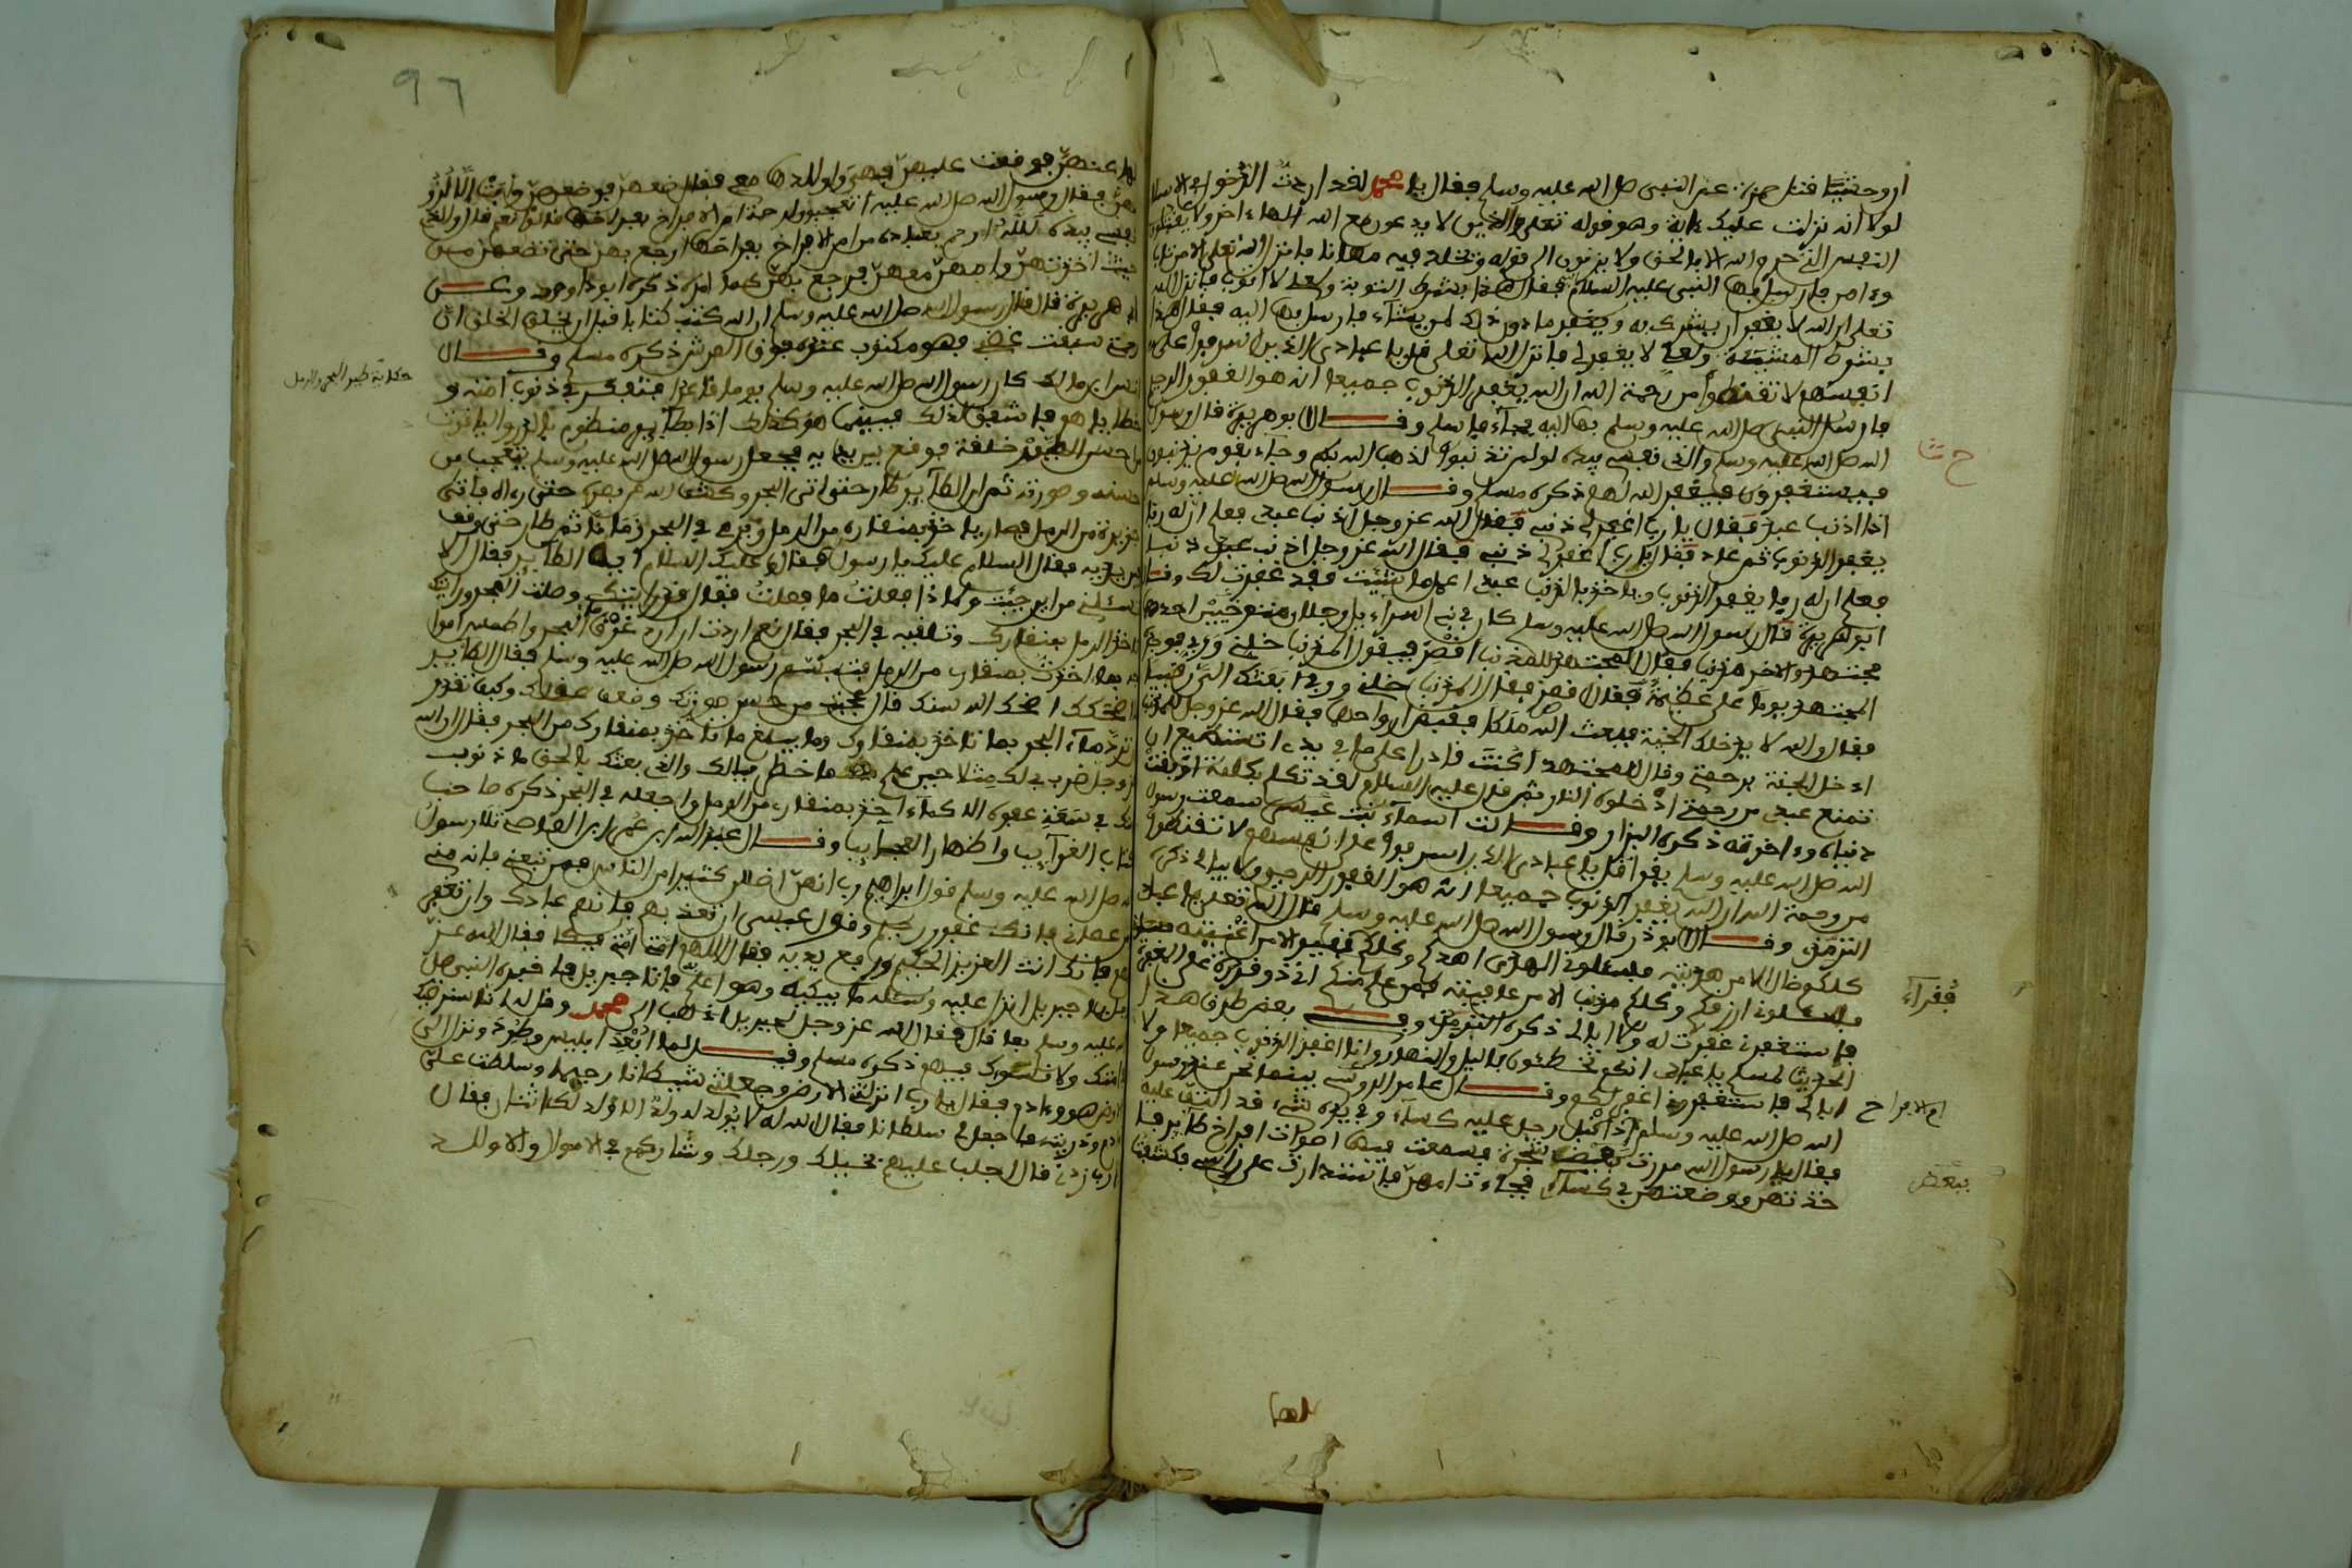 ان وحشيا قتل حمزة عم النبي صلى الله عليه وسلم فقال يا محمد لقد اردت الدخول في الاسلام
لولا انه نزلت عليك ءاية وهو قوله تعلى والذين لا يدعون مع الله الها ءاخر ولا يقتلون
النفس التي حرم الله الا بالحق ولا يزنون الى قوله ويخلد فيه مهانا فانزل الله تعلى الا من تاب
وءامن فارسل بها النبي عليه السلام فقال هذا بشرط التوبة ولعلى لا اتوب فانزل الله
تعلى ان الله لا يغفر ان يشرك به ويغفر ما دون ذلك لمن يشاء فارسل بها اليه فقال هذا
بشرط المشيئة ولعلي لا يغفر لي فانزل الله تعلى قل يا عبادي الذين اسرفوا على
انفسهم لا تقنطوا من رحمة الله ان الله يغفر الذنوب جميعا انه هو الغفور الرحيم
فارسل النبي صلى الله عليه وسلم بها اليه فجاء فاسلم وقال ابو هريرة قال رسول
الله صلى الله عليه وسلم والذي نفسي بيده لو لم تذنبوا لذهب الله بكم وجاء بقوم يذنبون
فيستغفرون فيغفر الله لهم ذكره مسلم وقال رسول الله صلى الله عليه وسلم
اذا اذنب عبد فقال يا رب اغفر لي ذنبي فيقول الله عز وجل اذنب عبدي فعلم ان له ربا
يغفر الذنوب ثم عاد فقال يا رب اغفر لي ذنبي فقال الله عز وجل اذنب عبدي ذنبا
فعلم ان له ربا يغفر الذنوب وياخذ بالذنب عبدي اعمل ما شئت فقد غفرت لك وقال
ابو هريرة قال رسول الله صلى الله عليه وسلم كان في بني اسراءيل رجلان احدهما
مجتهد والاخر مذنب فقال المجتهد للمذنب اقصر فيقول المذنب خلني وربي فوجده
المجتهد يوما على عظيمة فقال اقصر فقال المذنب خلني وربي ابعثك الي رقيبا
فقال والله لا يدخلك الجنة فبعث الله ملكا فقبض ارواحهما فقال الله عز وجل للمذنب
ادخل الجنة برحمتي وقال للمجتهد اكنت قادرا على ما في يدي اتستطيع ان
تمنع عبدي من رحمتي ادخلوه النار ثم قال عليه السلام لقد تكلم بكلمة اوبقت
دنياه وءاخرته ذكره البزار وقالت اسماء بنت عميس سمعت رسول
الله صلى الله عليه وسلم يقرا قل يا عبادي الذين اسرفوا على انفسهم لا تقنطوا
من رحمة الله ان الله يغفر الذنوب جميعا انه هو الغفور الرحيم ولا يبالي ذكره
الترمذي وقال ابو ذر قال رسول الله صلى الله عليه وسلم قال الله تعلى يا عبادي
كلكم ضال الا من هديته فسلوني الهدى اهدكم وكلكم فقير الا من اغنيته
فاسلوني ارزقكم وكلكم مذنب الا من عافيته فمن علم منكم اني ذو قدرة على المغفرة
فاستغفرني غفرت له ولا ابالي ذكره الترمذي وفي بعض طرق هذا
الحديث لمسلم يا عبادي انكم تخطئون بالليل والنهار وانا اغفر الذنوب جميعا ولا
ابالي فاستغفروني اغفر لكم وقال عامر الرامي بينما نحن عند رسول
الله صلى الله عليه وسلم اذ اقبل رجل عليه كساء وفي يده شيء قد التف عليه
فقال يا رسول الله مررت بغيضة شجرة فسمعت فيها اصوات افراخ طاير فا
خذتهن ووضعتهن في كساءي فجاءت امهن فاستدارت على راسي فكشفت
ح شا
فقراء
ام الافراخ
بيعض
لها عنهن فوقعت عليهن فهن اولاء معي فقال ضعهن فوضعهن وابت الا لزو
مهن فقال رسول الله صلى الله عليه اتعجبون لرحمة ام الافراخ بفراخها قالوا نعم قال والذي
نفسي بيده لله ارحم بعباده من ام الافراخ بفراخها ارجع بهن حتى تضعهن من
حيث اخذتهن وامهن معهن فرجع بهن كما امره ذكره ابو داوود وعن
ابي هريرة قال قال رسول الله صلى الله عليه وسلم ان الله كتب كتابا قبل ان يخلق الخلق ان
رحمتي سبقت غضبي فهو مكتوب عنده فوق العرش ذكره مسلم وقال
انس ابن مالك كان رسول الله صلى الله عليه وسلم يوما قاعدا متفكر في ذنوب امته و
خطاياهم فاشفق لذلك فبينما هو كذلك اذا بطاير منظوم بالدر والياقوت
من احسن الطيور خلقة فوقع بين يديه فجعل رسول الله صلى الله عليه وسلم يتعجب من
حسنه وصورته ثم ان الطاير طار حتى اتى البحر وكشف الله عن بصره حتى رءاه فاتى
جزيرة من الرمل فصار ياخذ بمنقاره من الرمل ويرمي في البحر زمانا ثم طار حتى وقف
بين يديه فقال السلام عليك يا رسول الله فقال وعليك السلام ايها الطاير فقال الا
تسئلني من اين جئت ولماذا فعلت ما فعلت فقال قد رايتك وصلت البحر ورايتك
تاخذ الرمل بمنقارك وتلقيه في البحر فقال نعم اردت ان اردم غرق البحر واطمس امواجه
بما اخذت بمنقاري من الرمل فتبسم رسول الله صلى الله عليه وسلم فقال الطاير
ما اضحكك اضحك الله سنك قال عجبت من حسن صورتك وضعف عقلك وكيف تقدر
تردم ماء البحر بما تاخذ بمنقارك وما يبلغ ما تاخذ بمنقارك من البحر فقال ان الله
عز وجل ضرب لك مثلا حين علم ما خطر ببالك والذي بعثك بالحق ما ذنوب
امتك في سعة عفو الله الا كما ءاخذ بمنقاري من الرمل واجعله في البحر ذكره صاحب
كتاب الغرايب واظهار العجايب وقال عبد الله ابن عمر ابن العاص تلا رسول
الله صلى الله عليه وسلم قول ابراهيم رب انهن اضللن كثيرا من الناس فمن تبعني فانه مني
ومن عصاني فانك غفور رحيم وقول عيسى ان تعذبهم فانهم عبادك وان تغفر
لهم فانك انت العزيز الحكيم ورفع يديه فقال اللهم امتي امتي فبكى فقال الله عز
وجل يا جبريل انزل عليه وسئله ما يبكيه وهو اعلم فاتا جبريل فاخبره النبي صلى
الله عليه وسلم بما قال فقال الله عز وجل لجبريل اذهب الى محمد وقل له انا سنرضيك
في امتك ولا نسوءك فيهم ذكره مسلم وقيل لما ابعد ابليس وطرد ونزل الى
الارض هو وءادم فقال يا رب انزلتني الارض وجعلتني شيطانا رجيما وسلطت علي
ءادم وذريته فاجعل لي سلطانا فقال الله له لا يولد له ولد الا ولد لك اثنان فقال
يا رب زدني قال اجلب عليهم بخيلك ورجلك وشاركهم في الاموال والاولاد
حكاية طير البحر والرمل
97